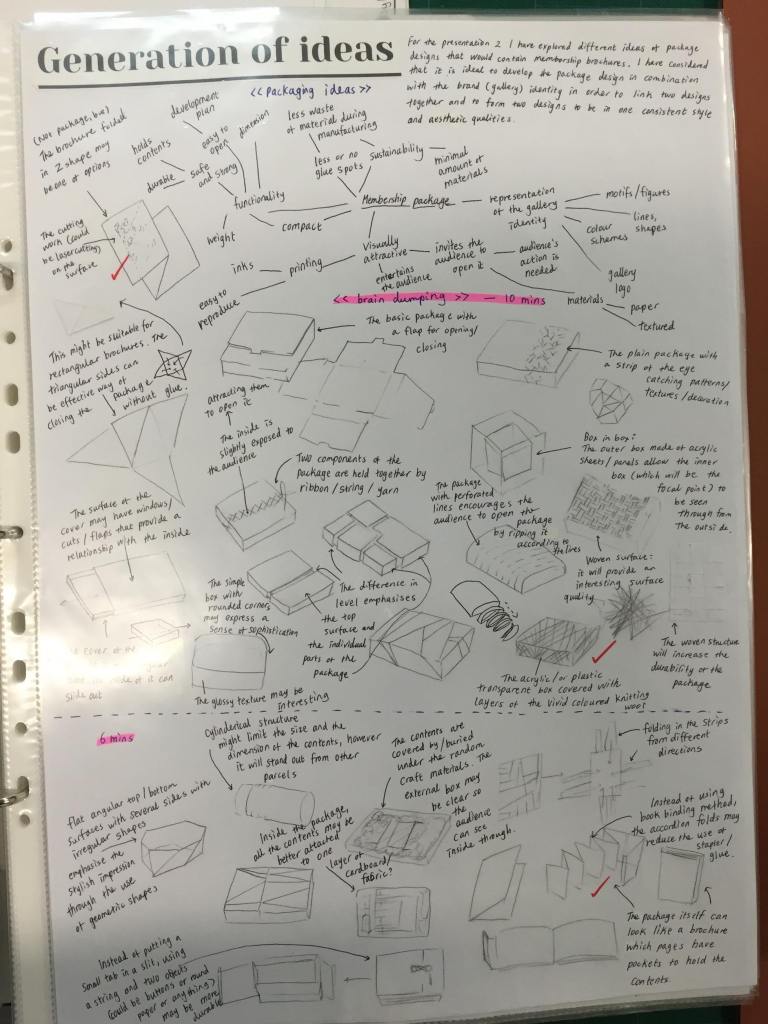 Generation of ideas
For the presentation 2 I have explored different ideas of package
designs that would contain membership brochures. I have considered
that it is ideal to develop the package design in combination
with the brand (gallery) identity in order to link two designs
together and to form two designs to be in one consistent style
and aesthetic qualities.
<< packaging ideas >>
(Not package, but)
The brochure folded
in Z shape may
be one of options
development
plan
holds
contents
easy to
open
dimension
durable
safe
and strong
less waste
of material during
manufacturing
less or no
glue spots
sustainability
minimal
amount of
materials
functionality
weight
compact
Membership package
representation
of the gallery
identity
motifs/figures
lines,
shapes
colour
schemes
gallery
logo
materials
paper
textured
visually
attractive
entertains
the audience
invites the
audience to
open it
audience's
action is
needed
inks
printing
easy to
reproduce
The cutting
work (could
be lasercutting)
on the
surface
<< brain dumping >> — 10 mins
This might be suitable for
rectangular brochures. The
triangular sides can
be effective way of
closing the package
without glue.
The basic package with
a flap for opening/
closing
The plain package with
a strip of the eye
catching patterns/
textures/decoration
attracting them
to open it
The inside is
slightly exposed to
the audience
Two components of the
package are held together by
ribbon/string/yarn
Box in box:
The outer box made of acrylic
sheets/panels allow the inner
box (which will be the
focal point) to
be seen
through from
the outside.
The package
with perforated
lines encourages the
audience to open the
package
by ripping it
according to
the lines
The surface of the
cover may have windows/
cuts/flaps that provide a
relationship with the inside
Woven surface:
it will provide an
interesting surface
quality
The simple
box with
rounded corners
may express a
sense of sophistication
The difference in
level emphasises
the top
surface and
the individual
parts of the
package
cover of the
of it can
slide out
The glossy texture may be
interesting
The acrylic/or plastic
transparent box covered with
layers of the vivid coloured knitting
wool
The woven structure
will increase the
durability of the
package
6 mins
Cylinderical structure
might limit the size and the
dimension of the contents, however
it will stand out from other
parcels
The contents are
covered by/buried
under the random
craft materials. The
external box may
be clear so
the
audience
can see
inside through.
folding in the strips
from different
directions
flat angular top/bottom
surfaces with several sides with
irregular shapes
emphasise the
stylish impression
through the use
of geometric shapes
Inside the package,
all the contents may be
better attached
to one
layer of
cardboard/
fabric?
Instead of using
book binding method,
the accordion folds may
reduce the use of
stapler/
glue.
The package itself can
look like a brochure
which pages have
pockets to hold the
contents.
Instead of putting a
small tab in a slit, using
a string and two objects
(could be buttons or round
paper or anything)
may be more
durable